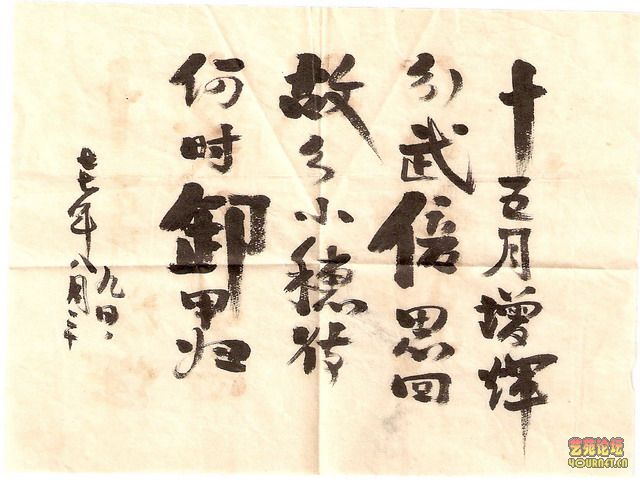 十五月增辉
武倍思回
故乡小穗
何时卸甲归
七七年八月二十
九日
艺苑论坛
YOURNET.CN